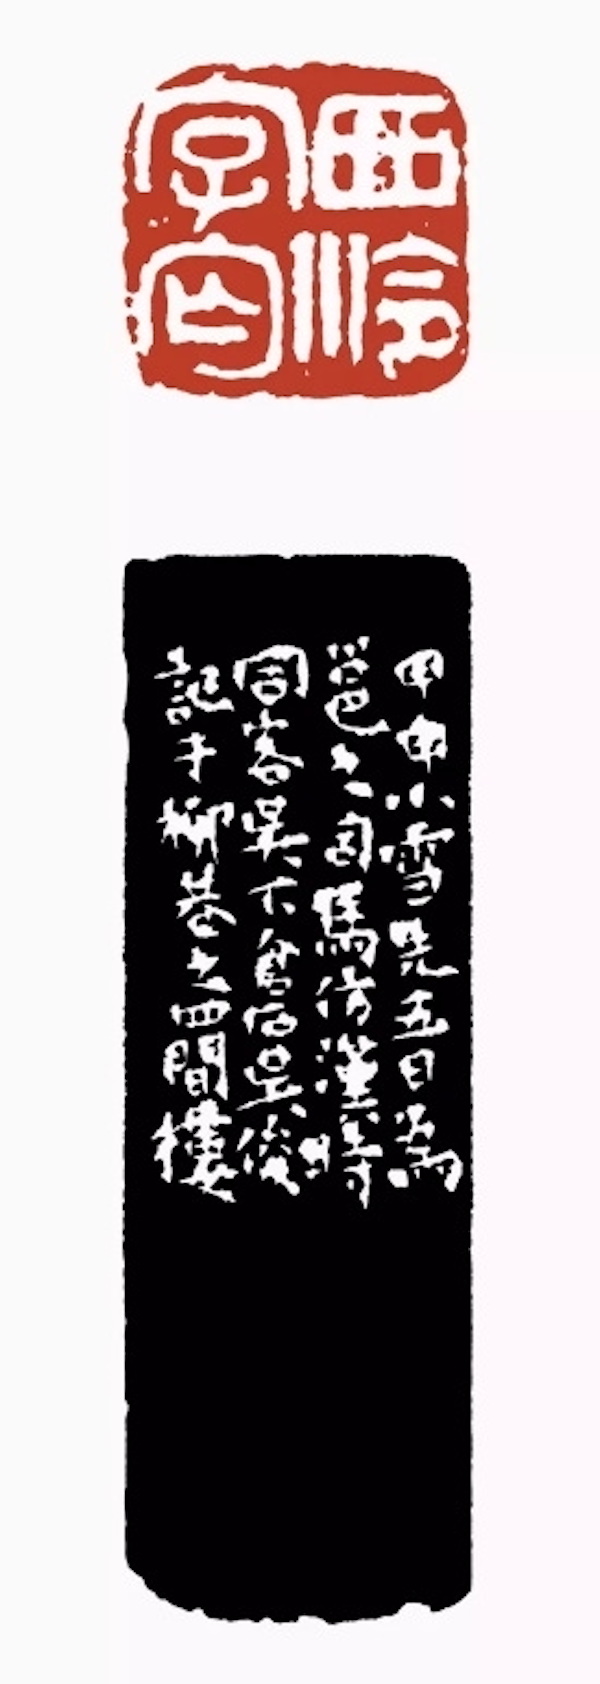 西泠
字匄
甲申小雪先五日為
邕之司馬仿漢時
同客吳下倉石吳俊
記于柳巷之四間樓